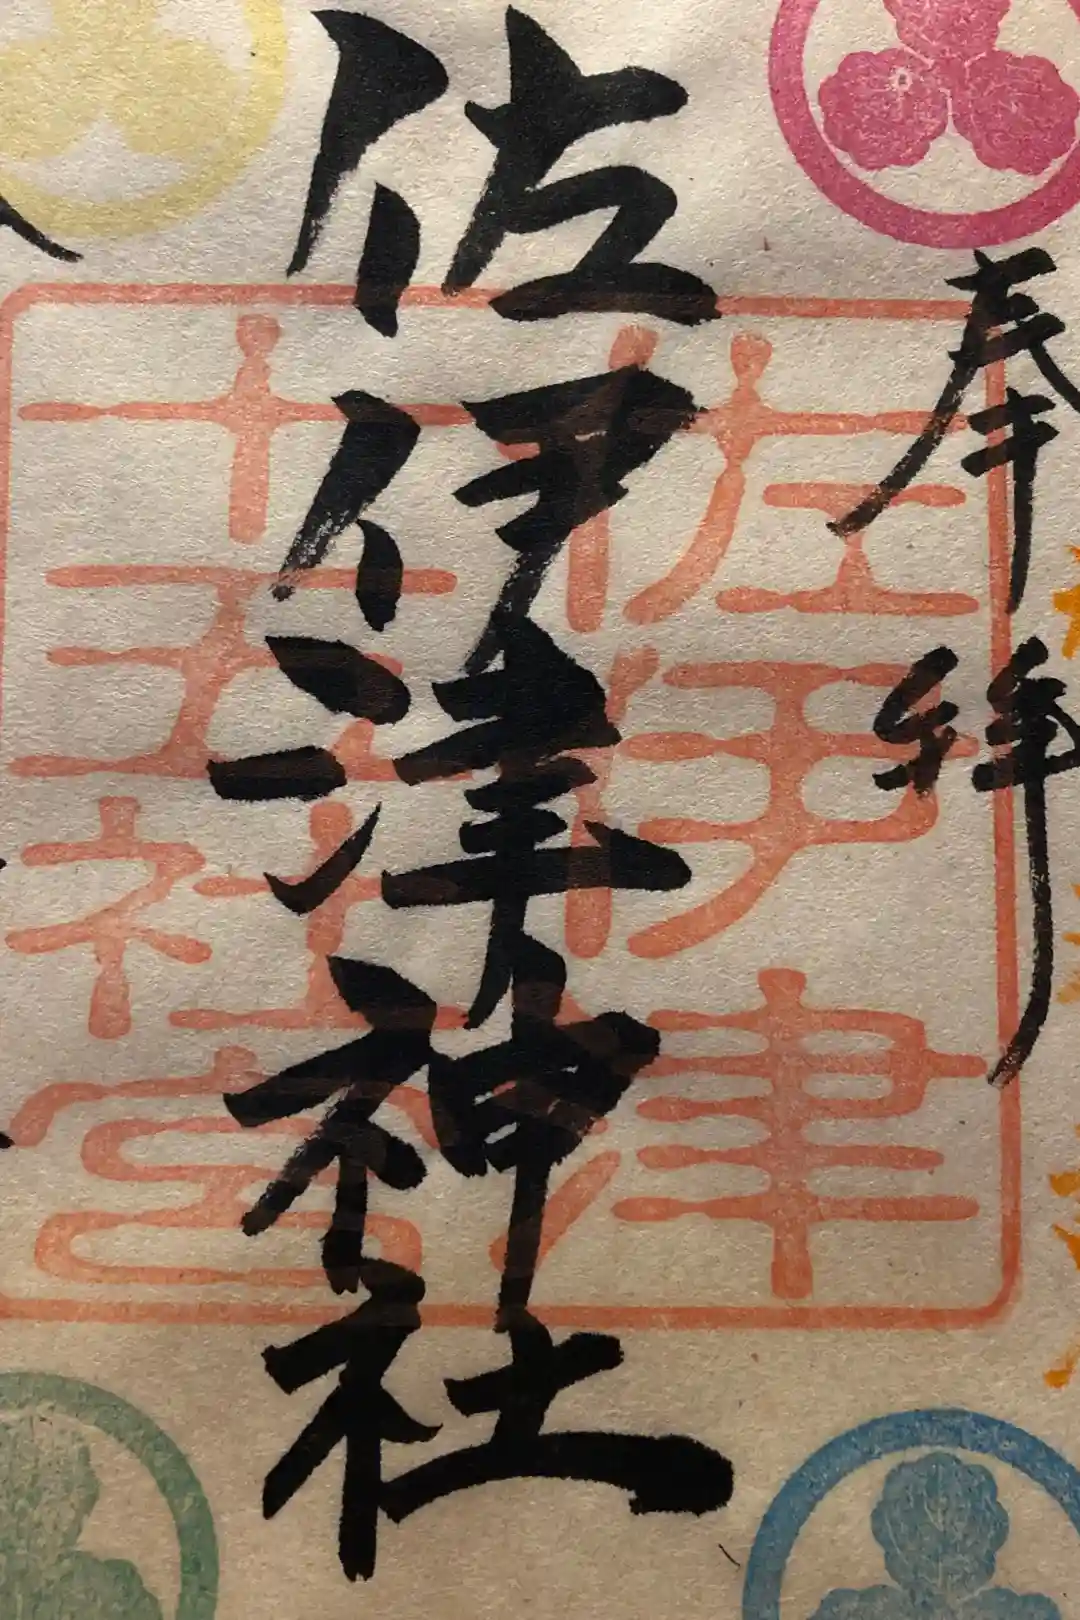 奉拝
佐伊津神社
佐伊津
十五社宮